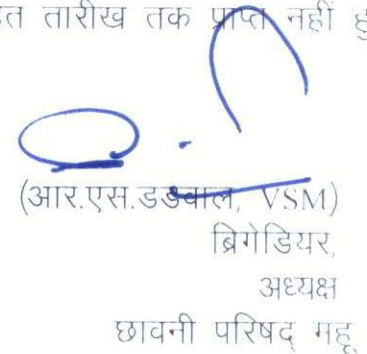 तारीख तक प्राप्त नहीं
(आर.एस.डडवाल, VSM)
ब्रिगेडियर,
अध्यक्ष
छावनी परिषद् महू